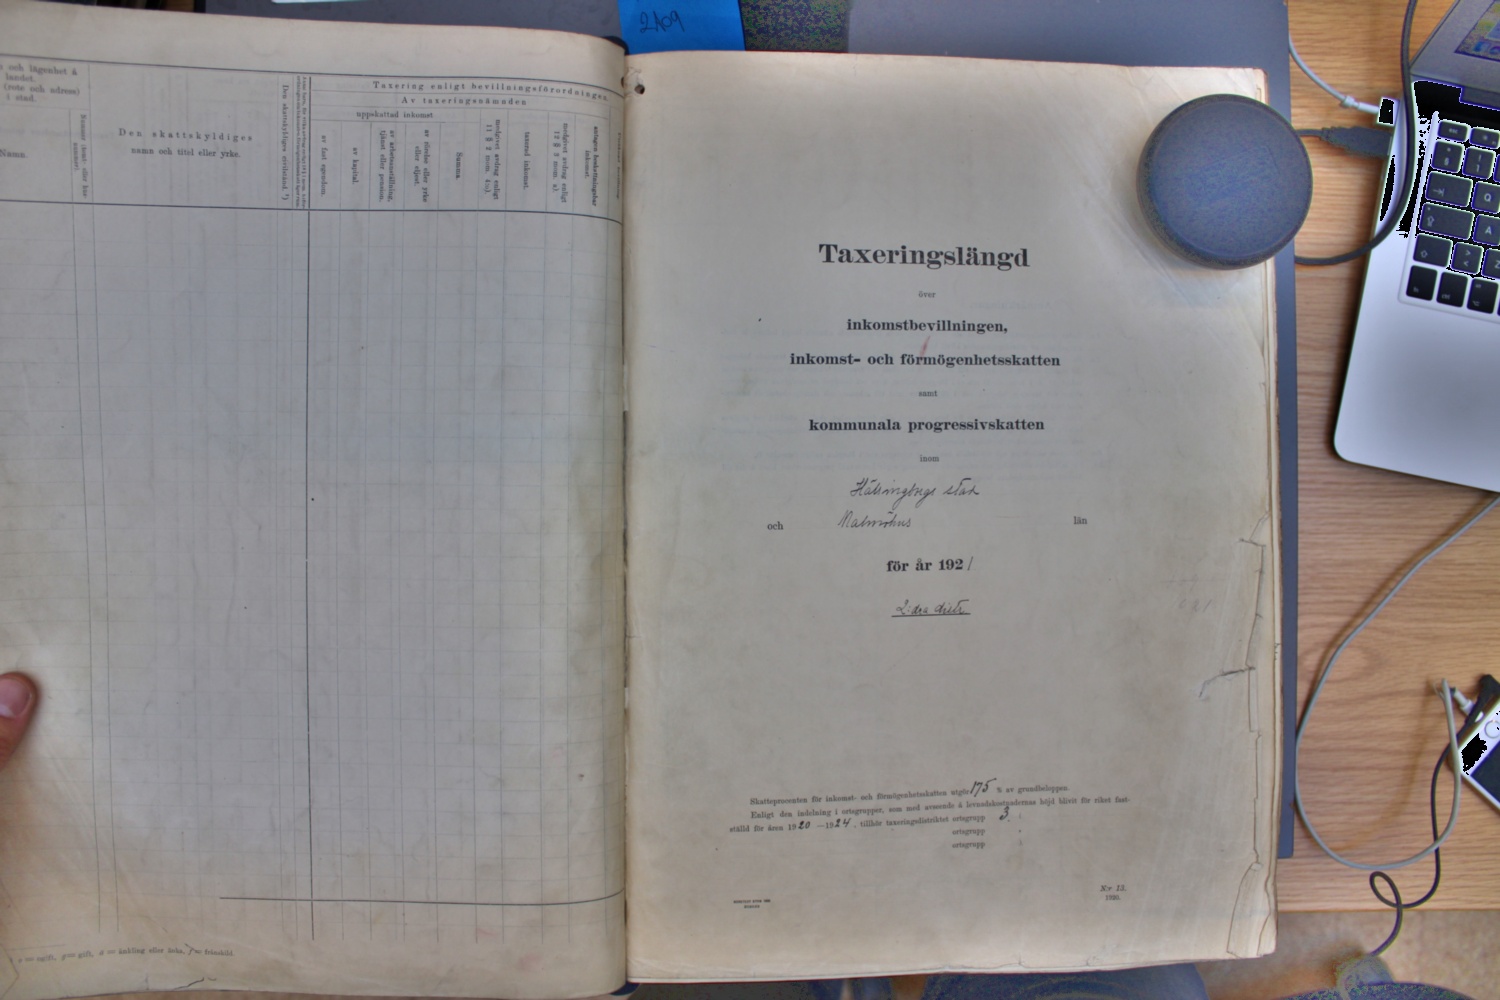 2A09
och lägenhet å
landet.
(rote och adress)
i stad.
Namn.
Den skattskyldiges
namn och titel eller yrke.
Den skattskyldiges civilstånd. ¹)
Taxering enligt bevillningsförordningen.
Av taxeringsnämnden
uppskattad inkomst
av fast egendom.
av kapital.
av arbetsanställning,
tjänst eller pension.
av rörelse eller yrke
eller eljest.
Summa.
medgivet avdrag enligt
taxerad inkomst.
medgivet avdrag enligt
antagen beskattningsbar
inkomst.
= ogift, g = gift, ä = änkling eller änka, f = frånskild.
Taxeringslängd
över
inkomstbevillningen,
inkomst- och förmögenhetsskatten
samt
kommunala progressivskatten
inom
Hälsingborgs stad
och Malmöhus län
för år 1921
2:dra distr.
Skatteprocenten för inkomst- och förmögenhetsskatten utgör 175 % av grundbeloppen.
Enligt den indelning i ortsgrupper, som med avseende å levnadskostnadernas höjd blivit för riket fast-
ställd för åren 1920—1924, tillhör taxeringsdistriktet ortsgrupp 3.
ortsgrupp
ortsgrupp
N:r 13.
1920.